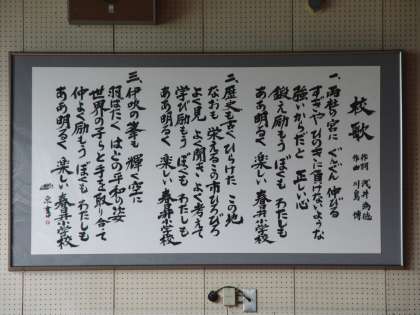 校歌
作詞
作曲 川島 博
一、両社の宮に ぐんぐん 伸びる
すぎや ひのきに負けないような
強いからだと 正しい心
鍛え励もう ぼくも わたしも
ああ明るく 楽しい 春昇小学校
二、歴史も古く ひらけた この地
なおも 栄えるこの市ひろびろ
よく見 よく聞き よく考えて
学び励もう ぼくも わたしも
ああ明るく 楽しい 春昇小学校
三、伊吹の峯も 輝く空に
羽ばたく はとの平和の姿
世界の子らと手を取り合て
仲よく励もう ぼくも わたしも
ああ明るく 楽しい 春昇小学校